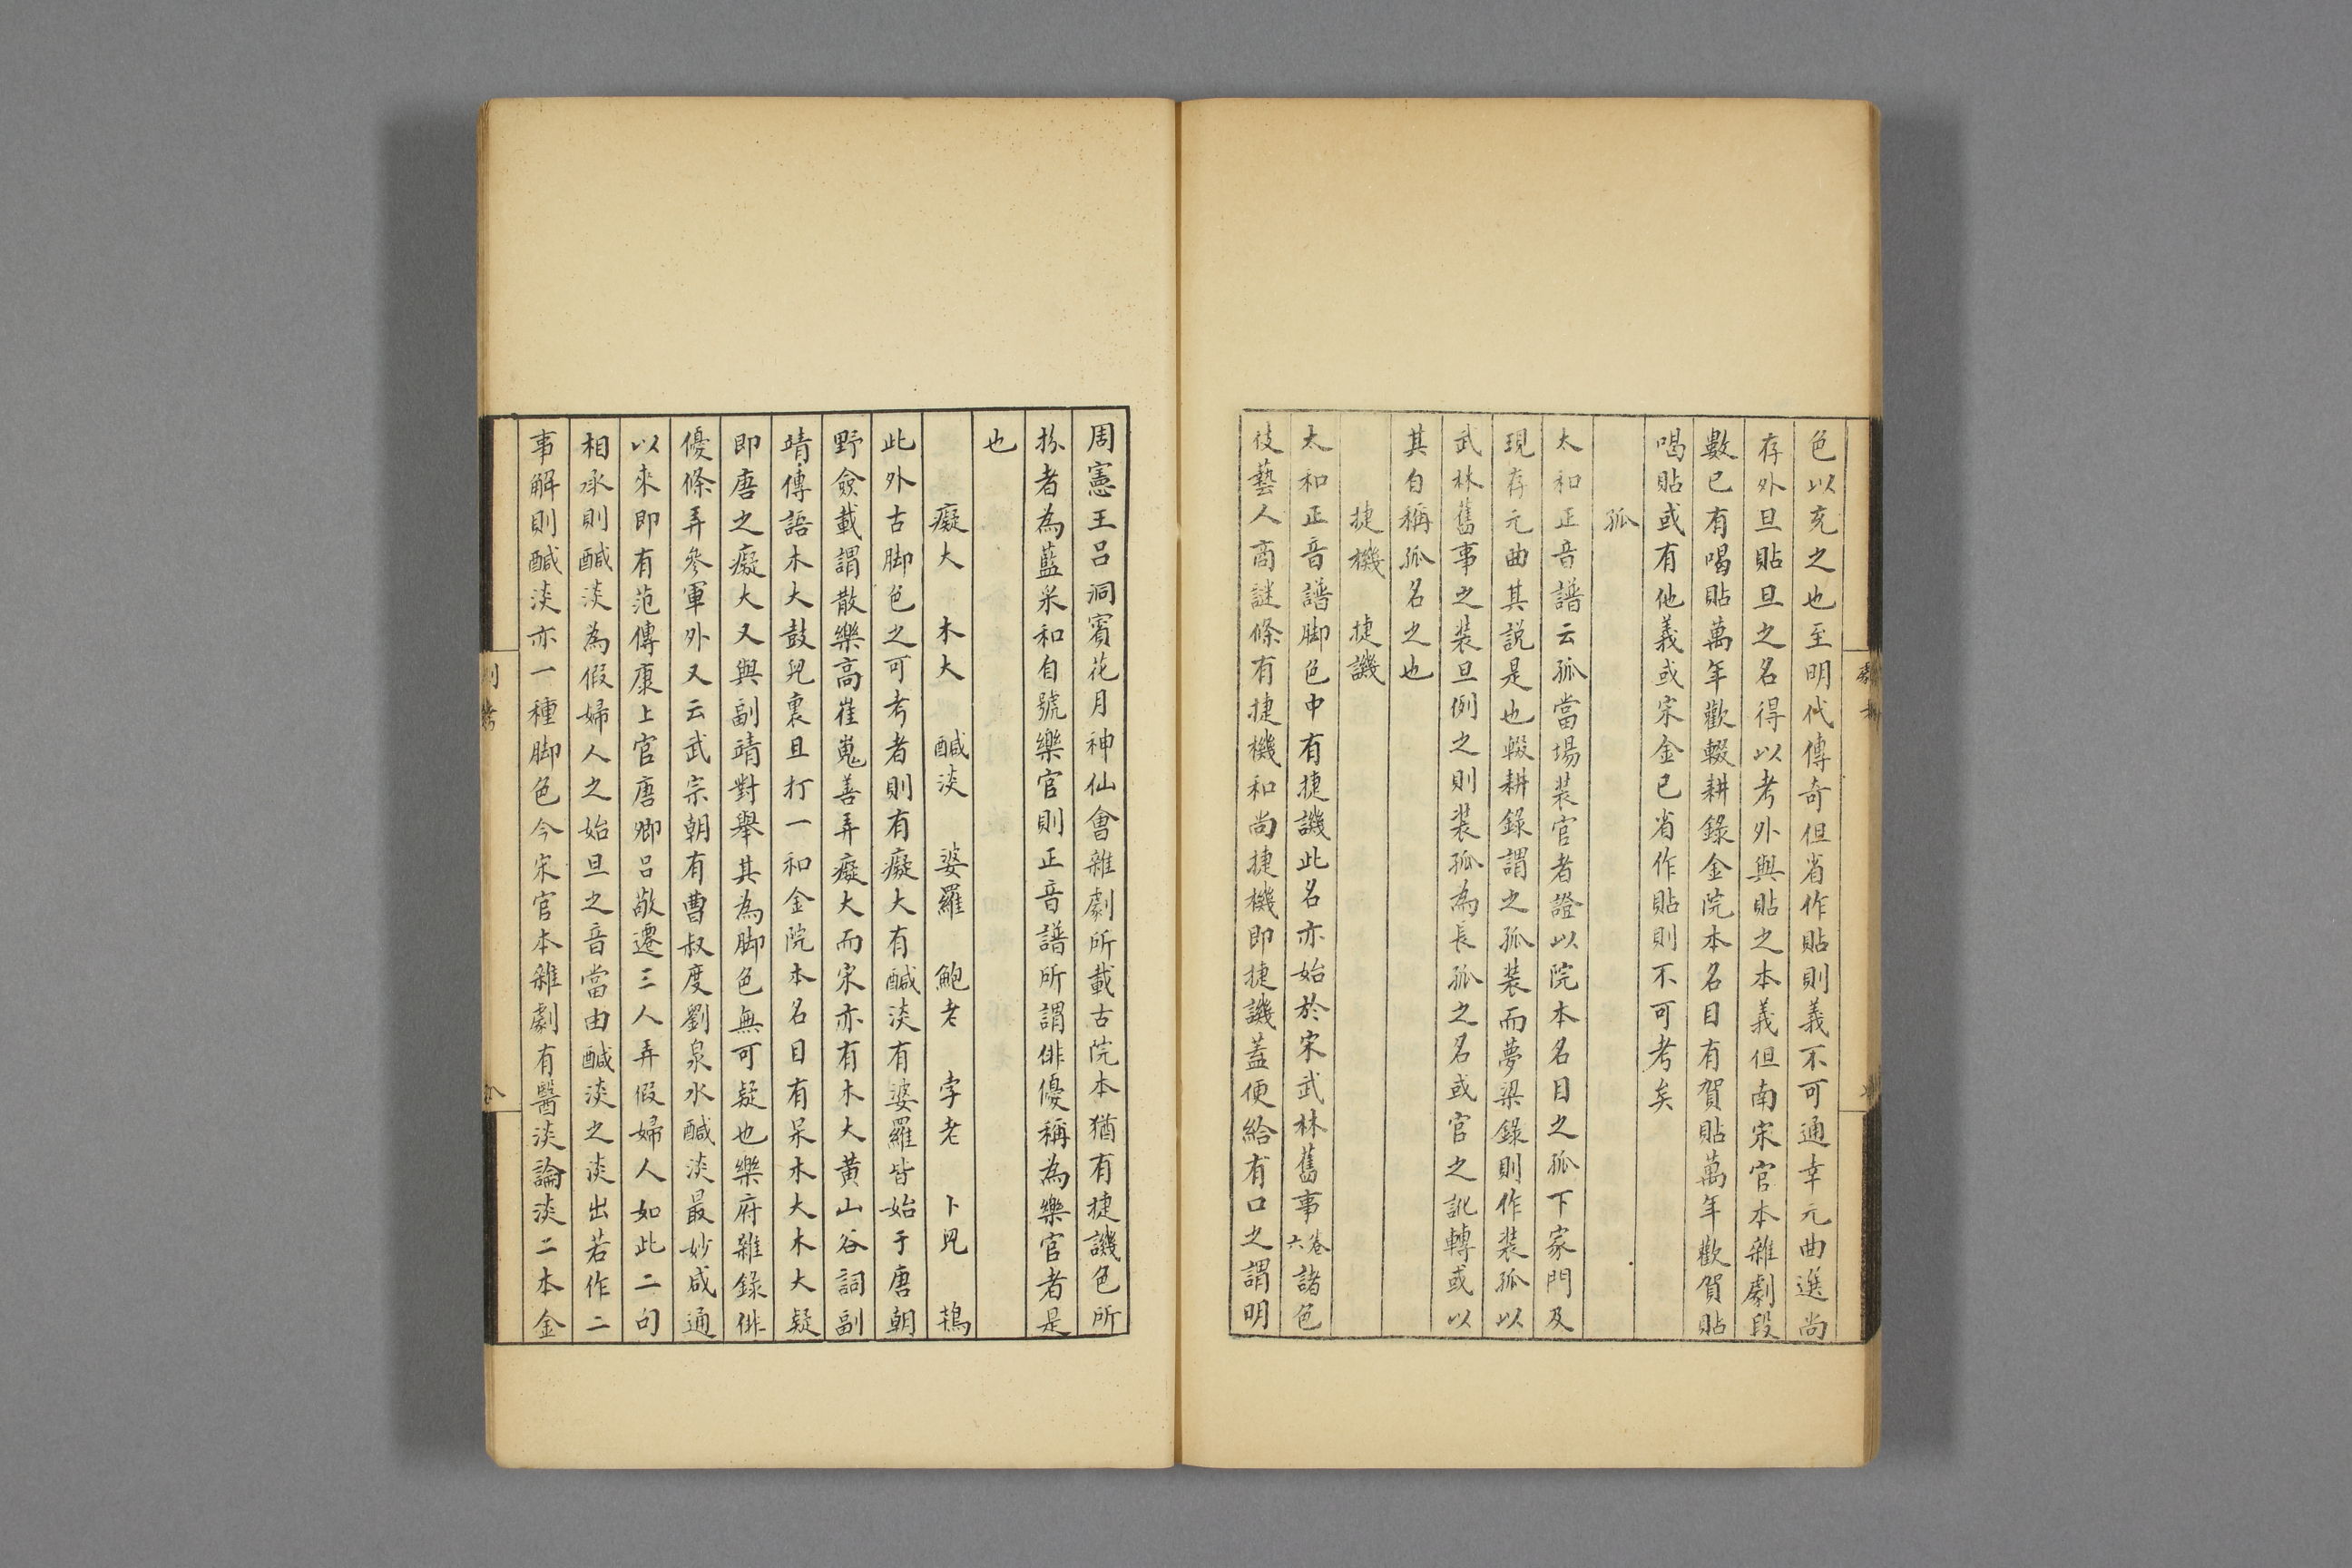 色以充之也至明代傳奇但省作貼則義不可通幸元曲選尚
存外旦貼旦之名得以考外與貼之本義但南宋官本雜劇段
數已有喝貼萬年歡輟耕錄金院本名目有賀貼萬年歡賀貼
喝貼或有他義或宋金已省作貼則不可考矣
孤
太和正音譜云孤當場裝官者證以院本名目之孤下家門及
現存元曲其説是也輟耕錄謂之孤裝而夢梁錄則作裝孤以
武林舊事之裝旦例之則裝孤為長孤之名或官之訛轉或以
其自稱孤名之也
捷機 捷譏
太和正音譜脚色中有捷譏此名亦始於宋武林舊事卷六諸色
伎藝人商謎條有捷機和尚捷機即捷譏蓋便給有口之謂明
周憲王呂洞賓花月神仙會雜劇所載古院本猶有捷譏色所
扮者為藍采和自號樂官則正音譜所謂俳優稱為樂官者是
也
癡大 木大 醎淡 婆羅 鮑老 孛老 卜兒 鴇
此外古脚色之可考者則有癡大有醎淡有婆羅皆始于唐朝
野僉載謂散樂高崔嵬善弄癡大而宋亦有木大黃山谷詞副
靖傳語木大鼓兒裏且打一和金院本名目有呆木大木大疑
即唐之癡大又與副靖對舉其為脚色無可疑也樂府雜錄俳
優條弄參軍外又云武宗朝有曹叔度劉泉水醎淡最妙咸通
以來即有范傳康上官唐卿呂敬遷三人弄假婦人如此二句
相承則醎淡為假婦人之始旦之音當由醎淡之淡出若作二
事解則醎淡亦一種脚色今宋官本雜劇有醫淡論淡二本金